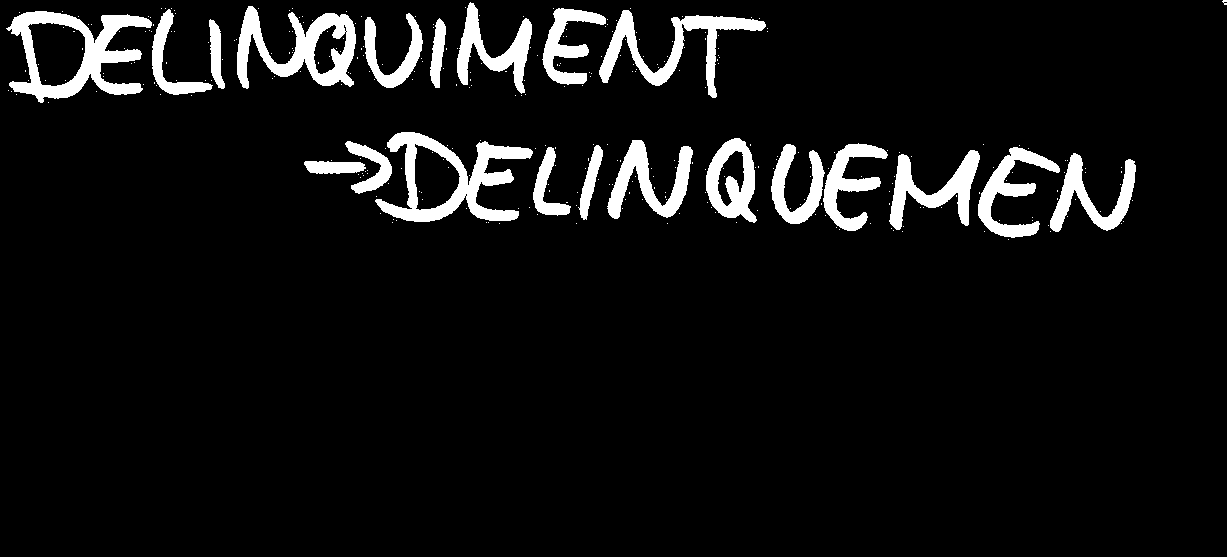 DELINQUIMENT
→DELINQUEMEN